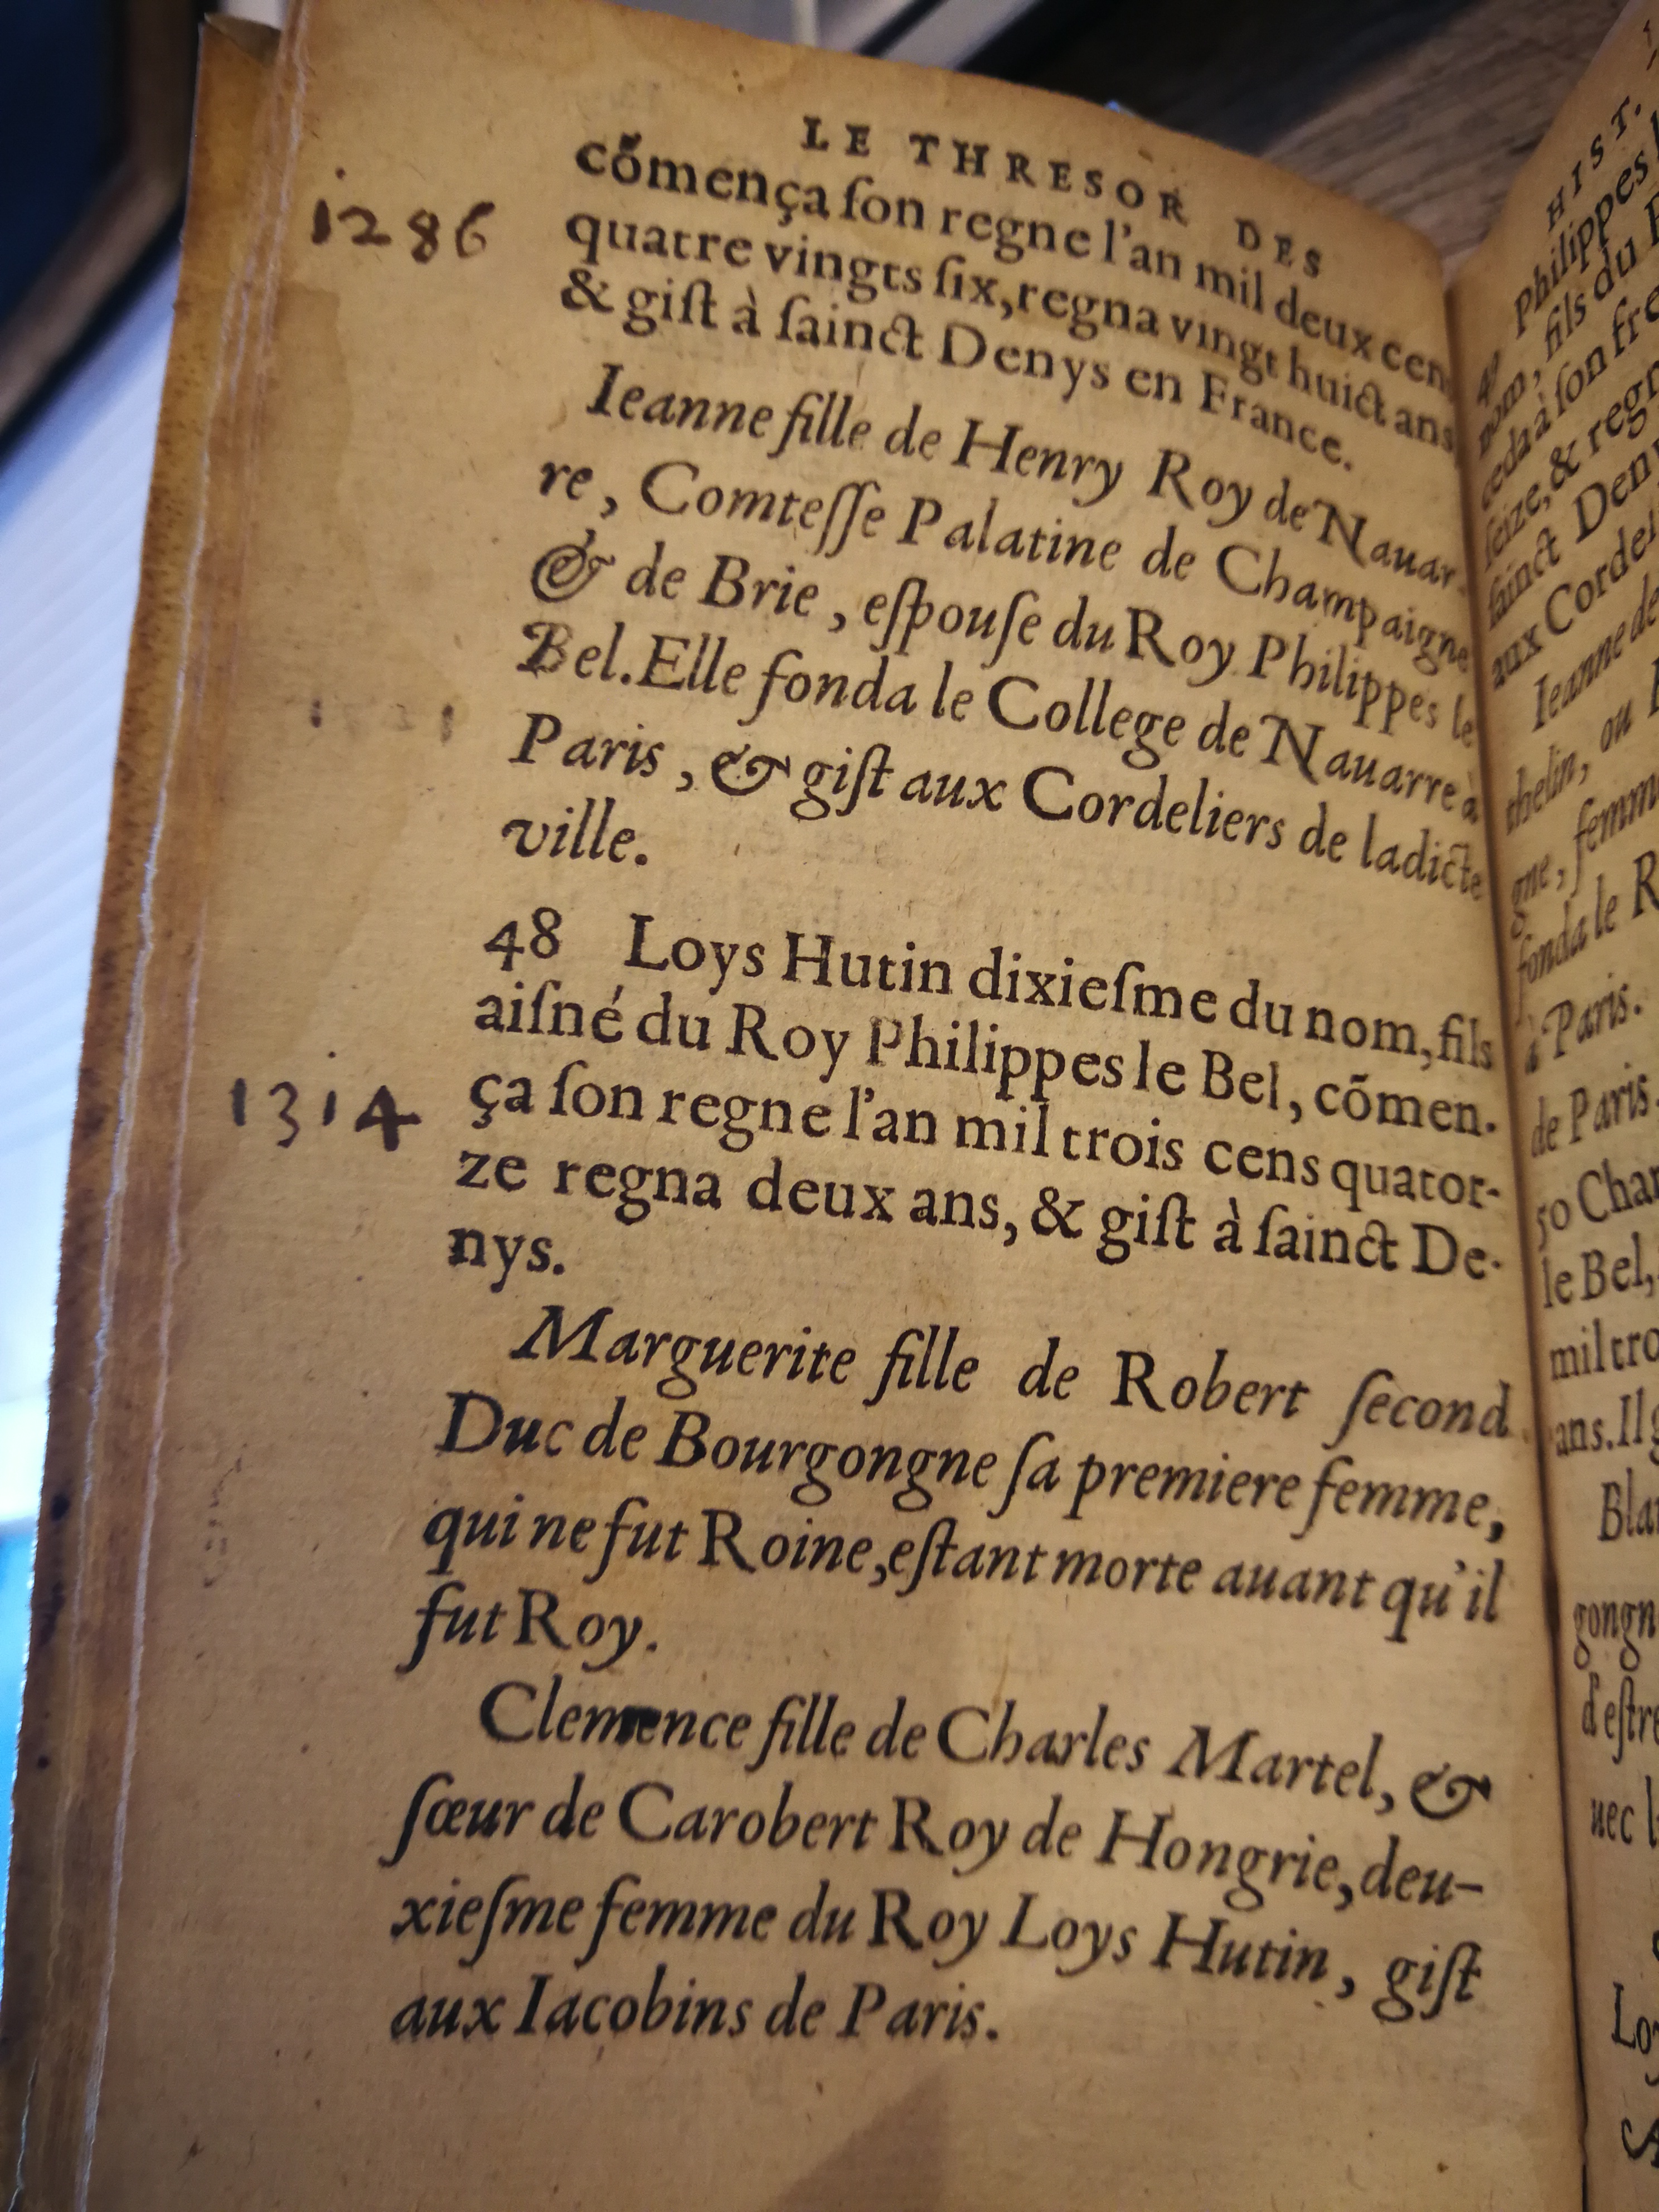 LE THRESOR DES
cõmença ſon regne l'an mil deux cen
1286
quatre vingts ſix, regna vingt huict ans
& giſt à ſainct Denys en France.
Ieanne fille de Henry Roy de Nauar-
re, Comteſſe Palatine de Champaigne
& de Brie, eſpouſe du Roy Philippes le
Bel. Elle fonda le College de Nauarre à
Paris, & giſt aux Cordeliers de ladicte
ville.
48 Loys Hutin dixieſme du nom, fils
aiſné du Roy Philippes le Bel, cõmen-
1314
ça ſon regne l'an mil trois cens quator-
ze regna deux ans, & giſt à ſainct De-
nys.
Marguerite fille de Robert ſecond
Duc de Bourgongne ſa premiere femme,
qui ne fut Roine, eſtant morte auant qu'il
fut Roy.
Clemence fille de Charles Martel, &
ſœur de Carobert Roy de Hongrie, deu-
xieſme femme du Roy Loys Hutin, giſt
aux Iacobins de Paris.
HIST.
Philippes
nom, fils du
ceda à ſon fre
ſeize, & regn
ſainct Deny
aux Cordel
Ieanne de
thelin, ou
gne, femme
fonda le R
à Paris.
de Paris.
50 Char
le Bel,
mil tro
ans. Il g
Bla
gongn
d'eſtre
uec l
Lo